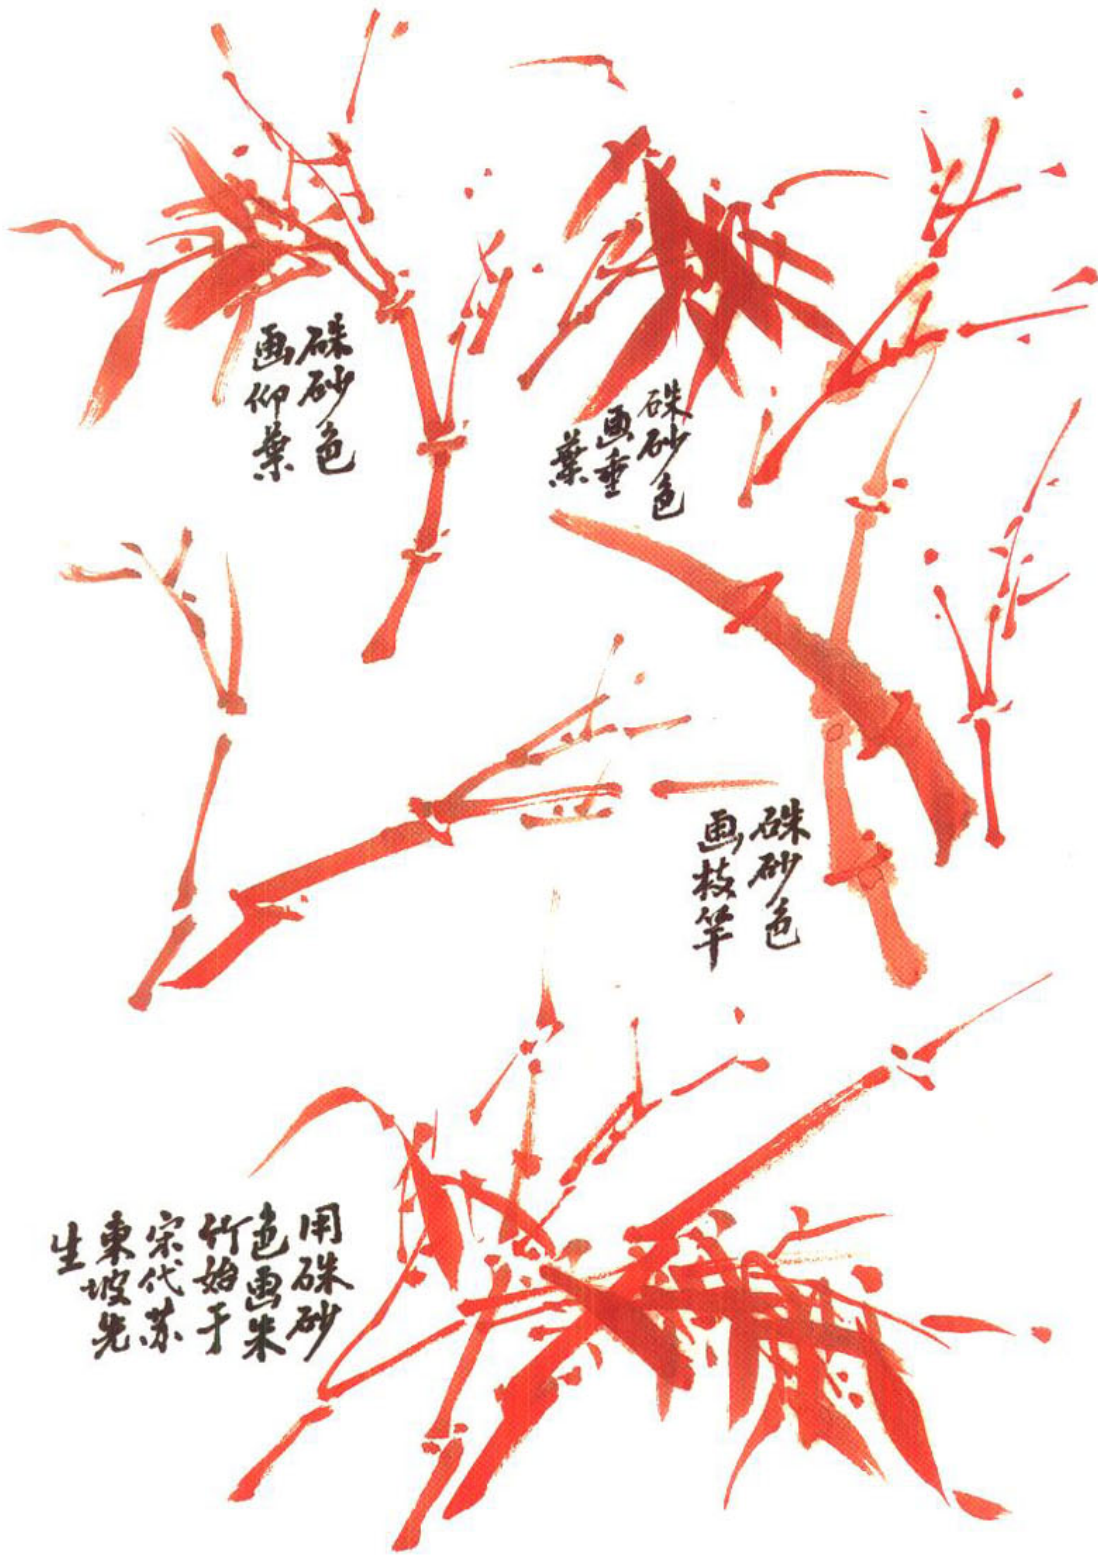 硃砂色
画仰葉
硃砂色
画垂
葉
硃砂色
画枝竿
用硃砂
色画朱
竹始于
宋代苏
東坡先
生